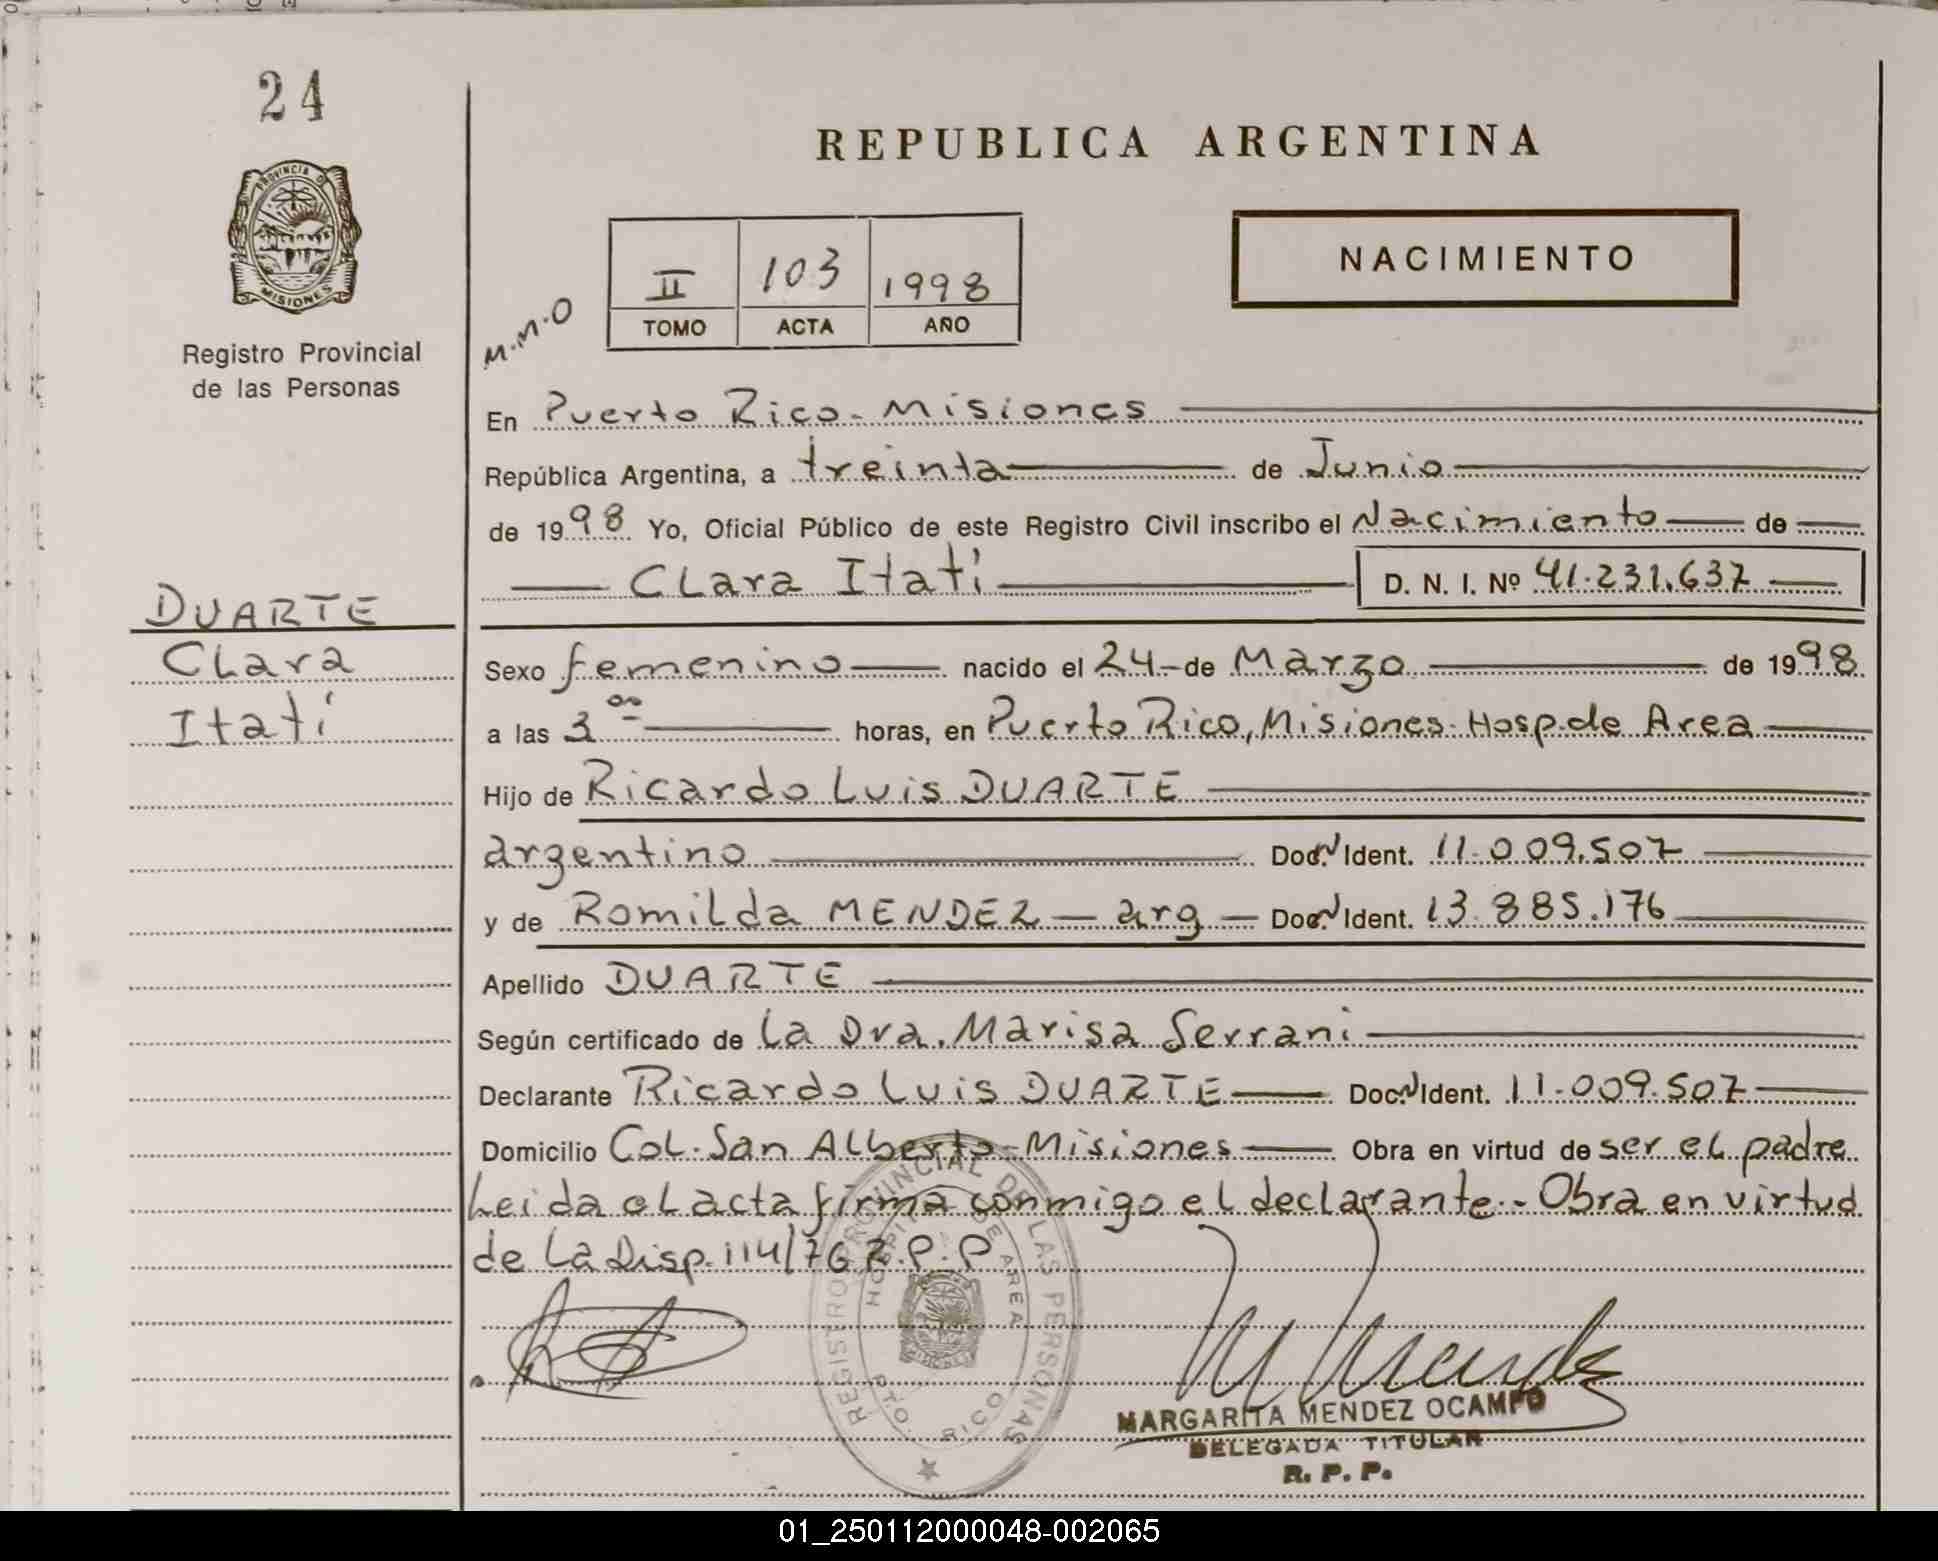 24
PROVINCIA DE
MISIONES
Registro Provincial
de las Personas
DUARTE
Clara
Itatí
REPUBLICA ARGENTINA
II 103 1998
TOMO ACTA AÑO
NACIMIENTO
M.M.O
En Puerto Rico - Misiones
República Argentina, a treinta de Junio
de 1998 Yo, Oficial Público de este Registro Civil inscribo el Nacimiento de
Clara Itatí D. N. I. Nº 41.231.637
Sexo femenino nacido el 24 de Marzo de 1998
a las 3 00 horas, en Puerto Rico, Misiones - Hosp. de Area
Hijo de Ricardo Luis DUARTE
argentino Doc. Ident. 11.009.507
y de Romilda MENDEZ - arg - Doc. Ident. 13.885.176
Apellido DUARTE
Según certificado de la Dra. Marisa Serrani
Declarante Ricardo Luis DUARTE Doc. Ident. 11.009.507
Domicilio Col. San Alberto - Misiones Obra en virtud de ser el padre
Leida el acta firma conmigo el declarante - Obra en virtud
de la Disp. 114/76 R.P.P
REGISTRO PROVINCIAL DE LAS PERSONAS
HOSPITAL DE AREA
PTO. RICO
M Mendez
MARGARITA MENDEZ OCAMPO
DELEGADA TITULAR
R. P. P.
01_250112000048-002065